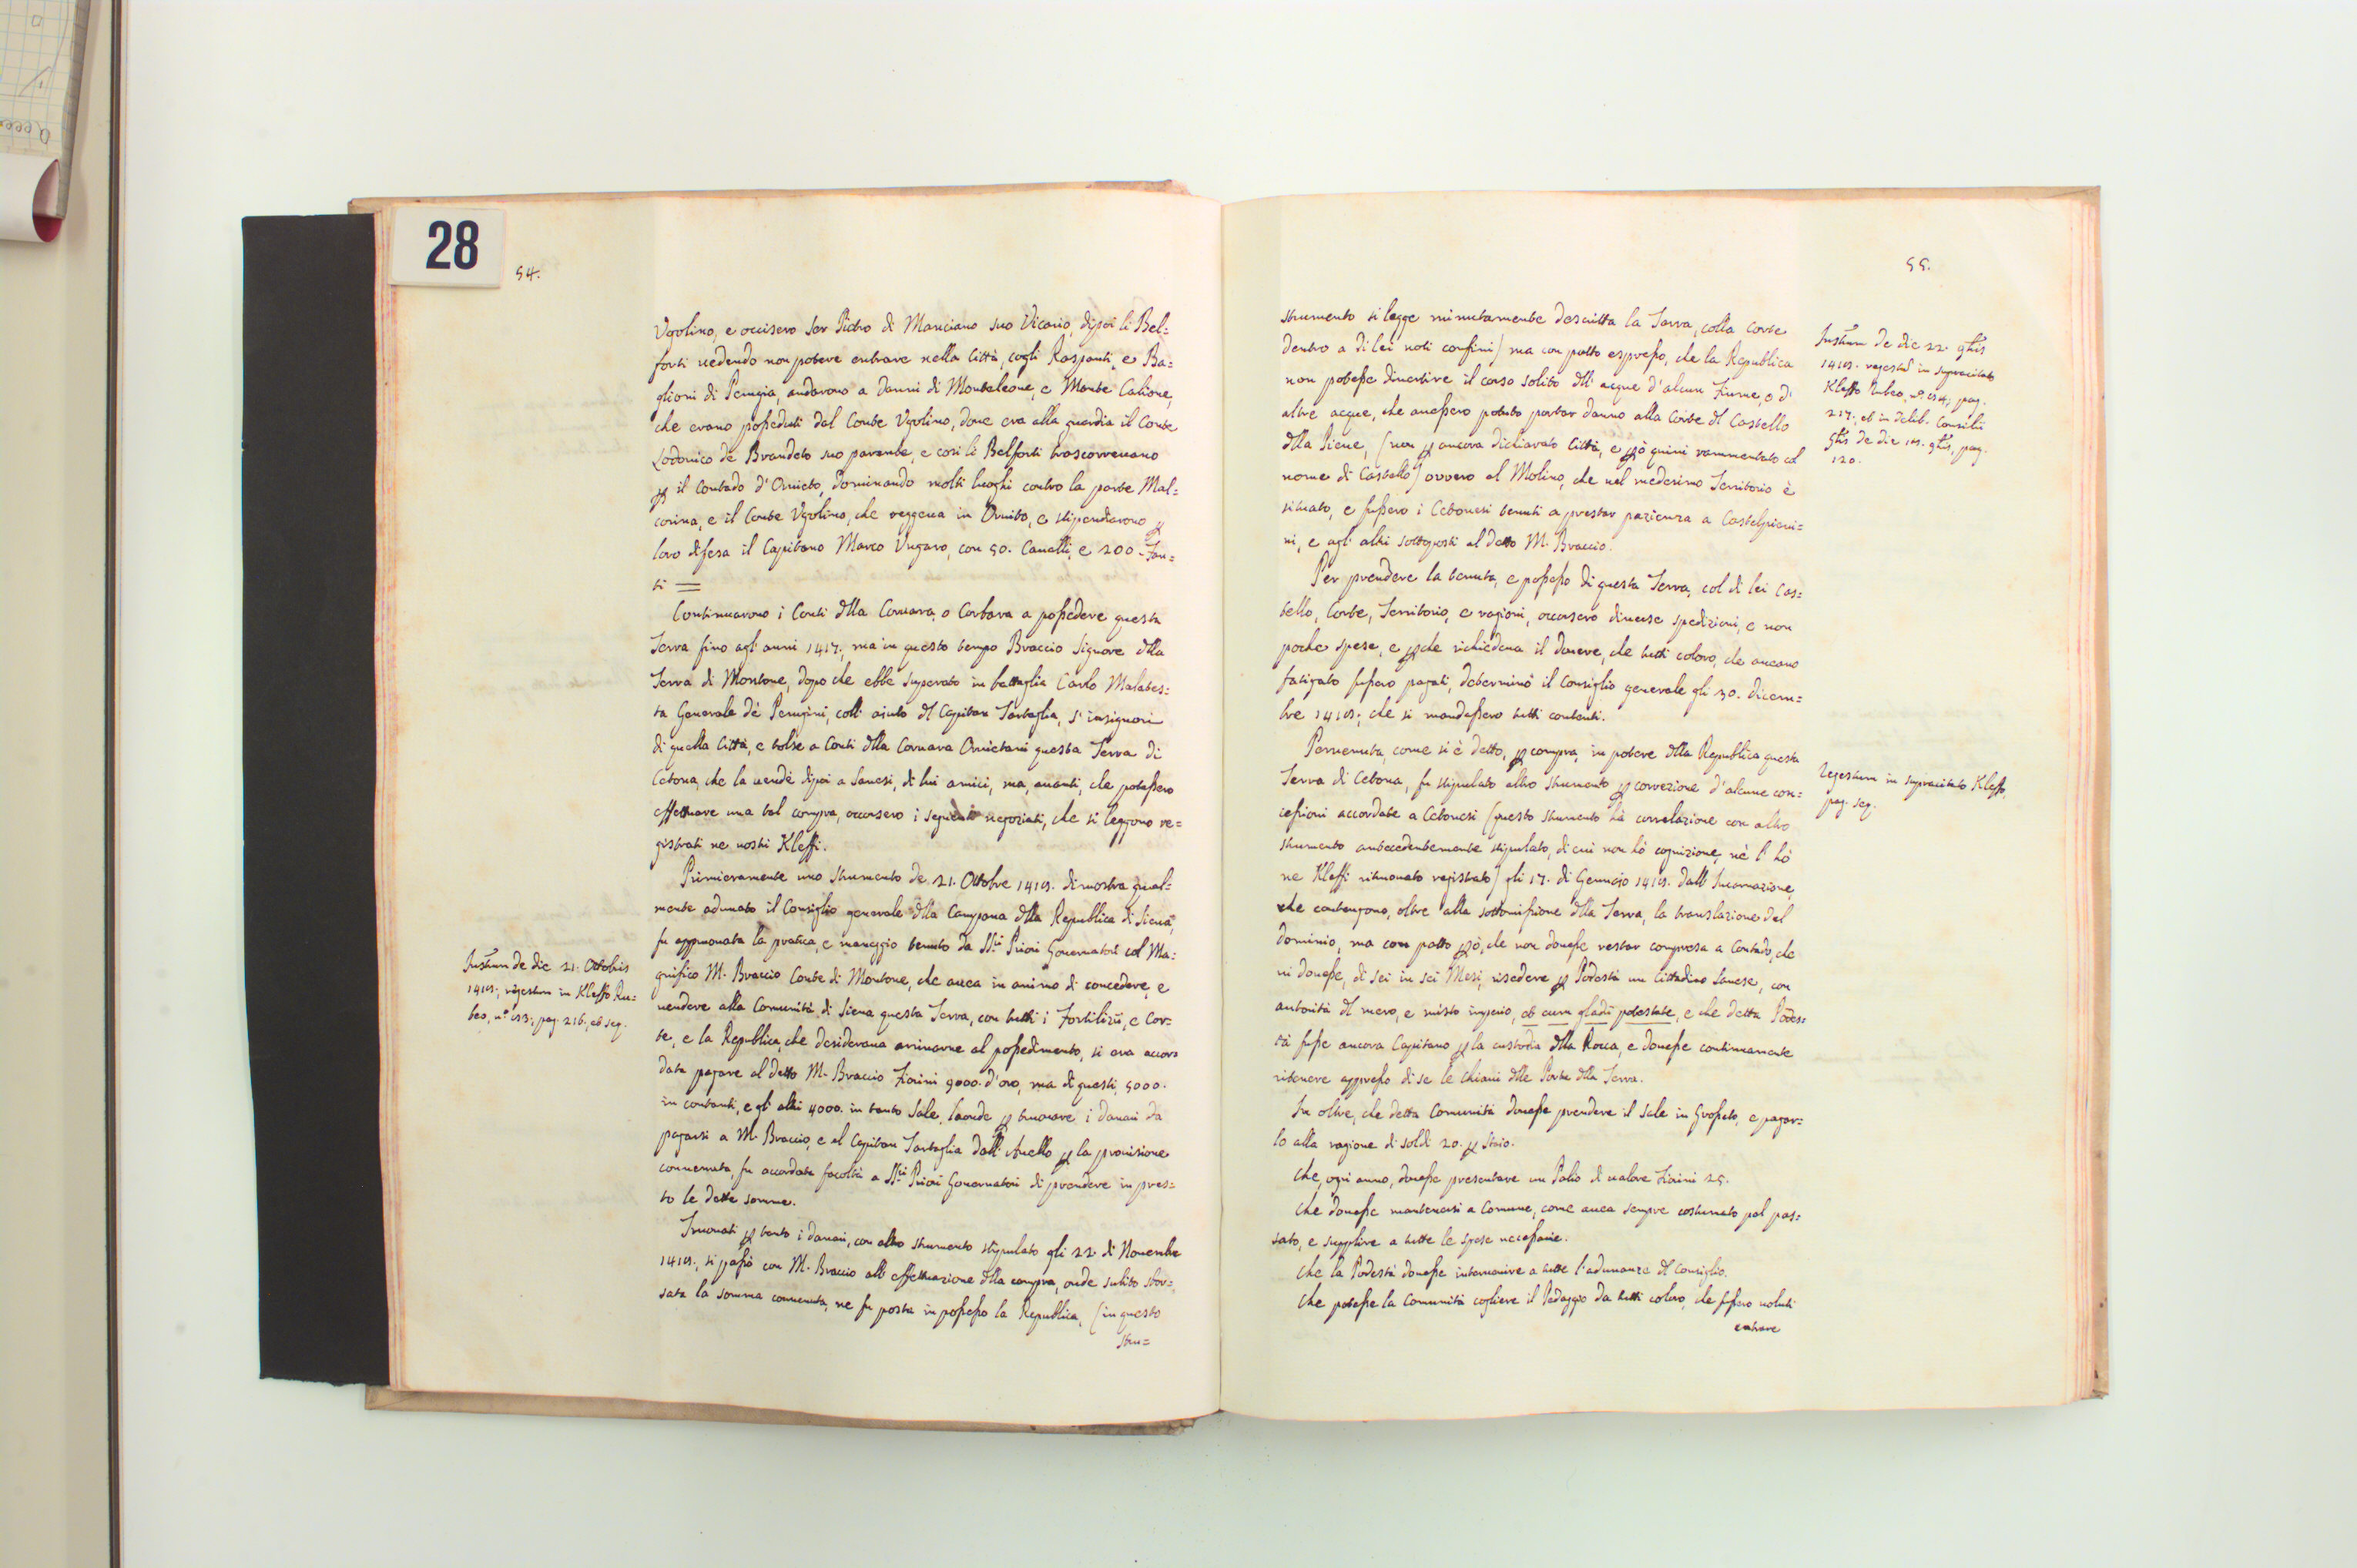 28
54.
Ugolino, e occisero Ser Pietro di Manciano suo Vicario, dipoi li Bel=
forti uedendo non potere entrare nella Città, cogli Raspanti, e Ba=
glioni di Perugia, andarono a danni di Monteleone, e Monte Calione,
che erano posseduti dal Conte Ugolino, doue era alla guardia il Conte
Lodouico de Brandeto suo parente, e così li Belforti trascorreuano
p il Contado d'Oruieto, dominando molti luoghi contro la parte Mal=
corina, e il Conte Ugolino, che reggeua in Oruieto, e stipendiarono p
loro difesa il Capitano Marco Ungaro, con 50. Caualli, e 200. Fan=
ti =
Continuarono i Conti dlla Coruara, o Corbara a possedere questa
Terra fino agl'anni 1417., ma in questo tempo Braccio Signore dlla
Terra di Montone, dopo che ebbe superato in battaglia Carlo Malates=
ta Generale de' Perugini, coll'aiuto dl Capitan Tartaglia, s'insignorì
di quella Città, e tolse a Conti dlla Coruara Oruietani questa Terra di
Cetona, che la uendè dipoi a Sanesi, di lui amici, ma, auanti, che potessero
effettuare una tal compra, occorsero i seguenti negoziati, che si leggono re=
gistrati ne nostri Kleffi.
Primieramente uno Strumento de 21. Ottobre 1418. dimostra qual=
mente adunato il Consiglio generale dlla Campana dlla Republica di Siena,
fu approuata la pratica, e maneggio tenuto da SSri Priori Gouernatori col Ma=
gnifico M. Braccio Conte di Montone, che auea in animo di concedere, e
uendere alla Comunità di Siena questa Terra, con tutti i Fortilizii, e Cor=
te, e la Republica, che desideraua arriuarne al possedimento, si era accor=
data pagare al detto M. Braccio Fiorini 9000. d'oro, ma di questi, 5000.
in contanti, e gl'altri 4000. in tanto Sale, laonde p trouare i danari da
pagarsi a M. Braccio, e al Capitan Tartaglia dall'Auello p la prouisione
conuenuta, fu accordata facoltà a SSri Priori Gouernatori di prendere in pres=
to le dette somme.
Trouati p tanto i danari, con altro strumento stipulato gli 22 di Nouembre
1418., si passò con M. Braccio all'effettuazione dlla compra, onde subito sbor=
sata la somma conuenuta, ne fu posta in possesso la Republica, (in questo
stru=
Instum de die 21. Octobris
1418., regestum in Kleffo Ru=
beo, n.º 153., pag. 216., et seq.
55.
strumento si legge minutamente descritta la Terra, colla Corte
dentro a di lei noti confini) ma con patto espresso, che la Republica
non potesse diuertire il corso solito dll'acque d'alcun Fiume, o d'
altre acque, che auessero potuto portar danno alla Corte dl Castello
dlla Pieue, (non p ancora dichiarato Città, e pò quiui rammentato col
nome di Castello) ovvero al Molino, che nel medesimo Territorio è
situato, e fussero i Cetonesi tenuti a prestar pazienza a Castelpieui=
ni, e agl'altri sottoposti al detto M. Braccio.
Per prendere la tenuta, e possesso di questa Terra, col di lei Cas=
tello, Corte, Territorio, e ragioni, occorsero diuerse spedizioni, e non
poche spese, e pche richiedeua il douere, che tutti coloro, che aueano
fatigato fussero pagati, determinò il Consiglio generale gli 30. dicem=
bre 1418., che si mandassero tutti contenti.
Peruenuta, come si è detto, p compra, in potere dlla Republica questa
Terra di Cetona, fu stipulato altro strumento p correzione d'alcune con=
cessioni accordate a Cetonesi (questo strumento hà correlazione con altro
strumento antecedentemente stipulato, di cui non hò cognizione, nè l'hò
ne Kleffi ritrouato registrato) gli 17. di Gennajo 1418. dall'Incarnazione,
che contengono, oltre alla sottomissione dlla Terra, la translazione del
dominio, ma con patto pò, che non douesse restar compresa a Contado, che
ui douesse, di sei in sei Mesi, risedere p Podestà un Cittadino Sanese, con
autorità dl mero, e misto imperio, et cum gladii potestate, e che detto Podes=
tà fusse ancora Capitano p la custodia dlla Rocca, e douesse continuamente
ritenere appresso di se le Chiaui dlle Porte dlla Terra.
In oltre, che detta Comunità douesse prendere il Sale in Grosseto, e pagar=
lo alla ragione di soldi 20. p Staio.
Che, ogni anno, douesse presentare un Palio di ualore Fiorini 25.
Che douesse mantenersi a Comune, come auea sempre costumato pel pas=
sato, e supplire a tutte le spese necessarie.
Che la Podestà douesse interuenire a tutte l'adunanze dl Consiglio.
Che potesse la Comunità cogliere il Pedaggio da tutti coloro, che fussero uoluti
entrare
Instum de die 22. 9bris
1418. regestum in supracitato
Kleffo Rubeo, n.º 154., pag.
217., et in Delib. Consilii
Glis de die 18. 9bris, pag.
120.
Regestum in supracitato Kleffo,
pag. seq.